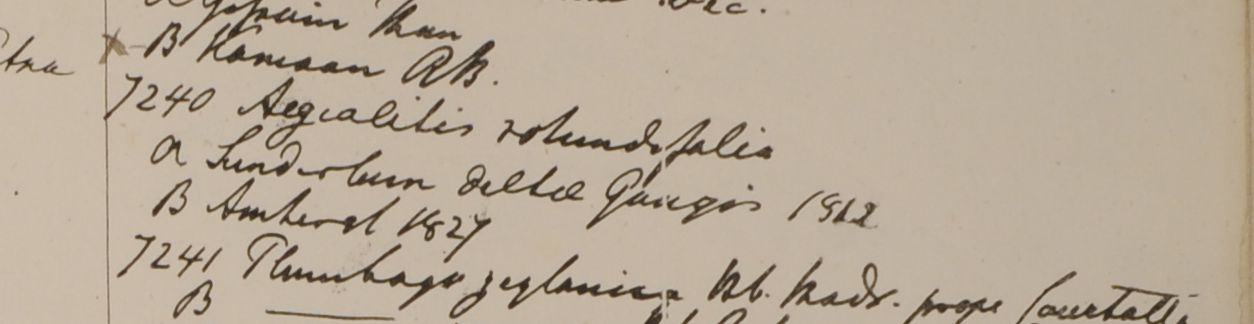 B Kamaon RB.
7240 Aegialitis rotundifolia
a Sunderbun deltae Gangis 1812
B Amherst 1827
7241 Plumbago zeylanica Hb. Madr. prope Courtall.
B